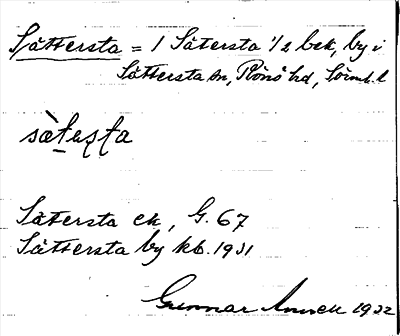 Sättersta = 1 Sätersta 1/2 bek, by i
Sättersta sn, Rönö hd, Sörml.
sätersta
Sätersta ek, G. 67
Sättersta by kb. 1931
Gunnar 1932